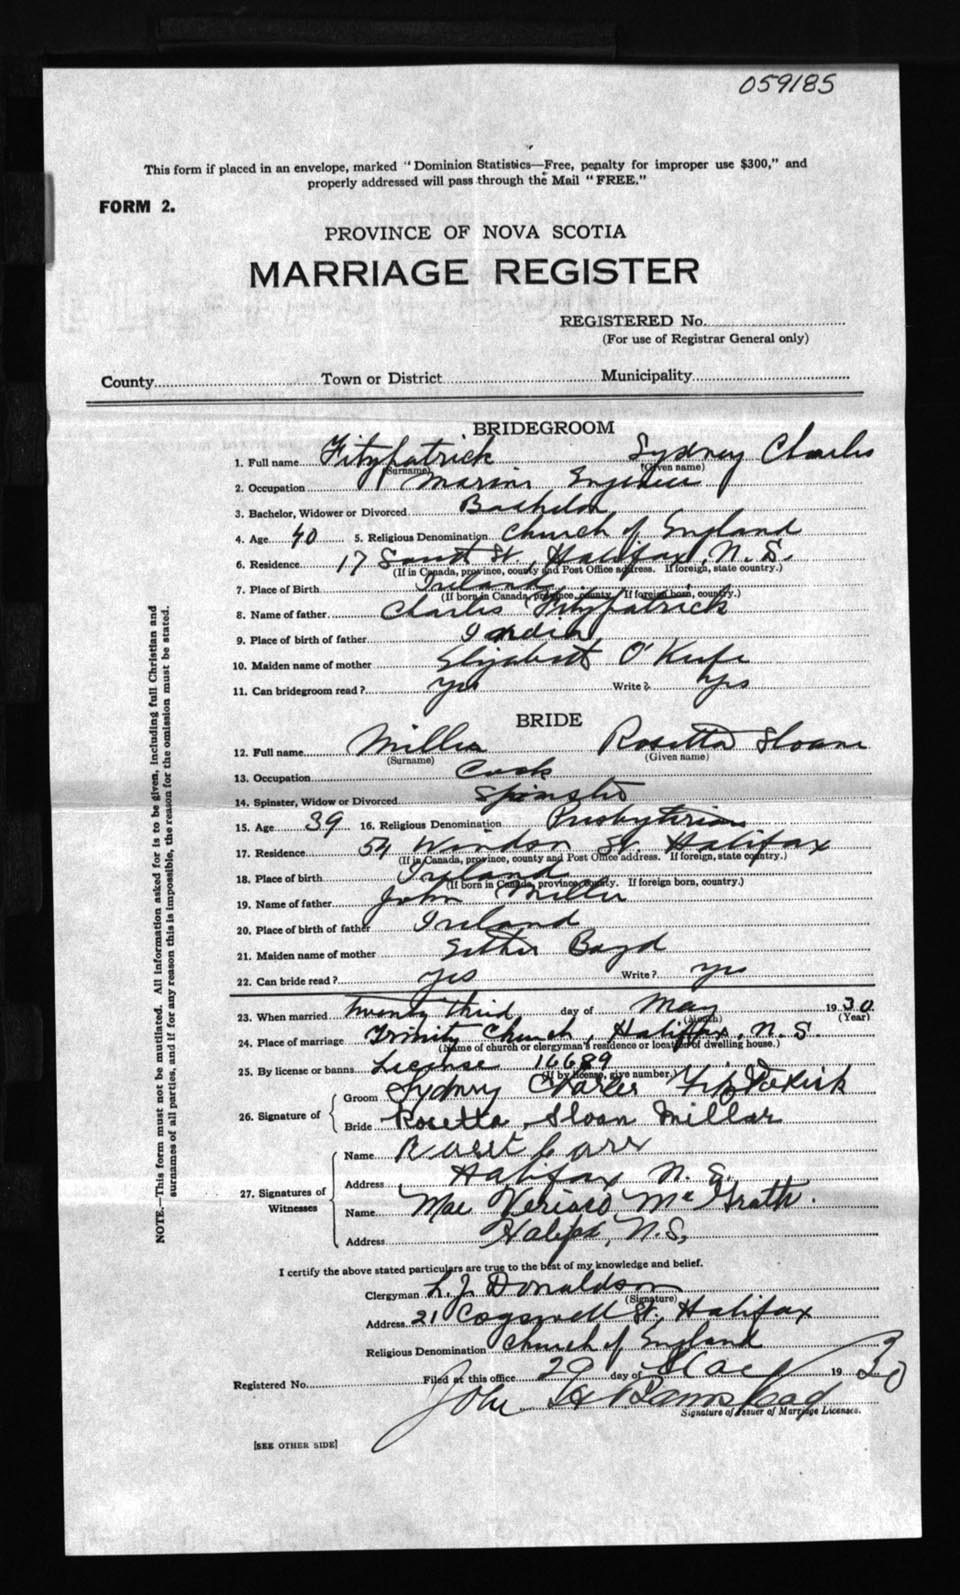 059185
This form if placed in an envelope, marked "Dominion Statistics—Free, penalty for improper use $300," and
properly addressed will pass through the Mail "FREE."
FORM 2.
PROVINCE OF NOVA SCOTIA
MARRIAGE REGISTER
REGISTERED No.
(For use of Registrar General only)
County Town or District Municipality
BRIDEGROOM
1. Full name Fitzpatrick Sydney Charles
(Surname) (Given name)
2. Occupation Marine Engineer
3. Bachelor, Widower or Divorced Bachelor
4. Age 40 5. Religious Denomination Church of England
6. Residence 17 South St, Halifax, N.S.
(If in Canada, province, county and Post Office address. If foreign, state country.)
7. Place of Birth Ireland
(If born in Canada, province, county. If foreign born, country.)
8. Name of father Charles Fitzpatrick
9. Place of birth of father India
10. Maiden name of mother Elizabeth O'Keefe
11. Can bridegroom read? yes Write? yes
BRIDE
12. Full name Miller Rosetta Sloane
(Surname) (Given name)
13. Occupation Cook
14. Spinster, Widow or Divorced Spinster
15. Age 39 16. Religious Denomination Presbyterian
17. Residence 54 Windsor St. Halifax
(If in Canada, province, county and Post Office address. If foreign, state country.)
18. Place of birth Ireland
(If born in Canada, province, county. If foreign born, country.)
19. Name of father John Miller
20. Place of birth of father Ireland
21. Maiden name of mother Esther Boyd
22. Can bride read? yes Write? yes
23. When married twenty third day of May 1930
(Month) (Year)
24. Place of marriage Trinity Church, Halifax, N.S.
(Name of church or clergyman's residence or location of dwelling house.)
25. By license or banns License 16689
(If by license, give number.)
26. Signature of
Groom Sydney Charles Fitzpatrick
Bride Rosetta Sloan Millar
27. Signatures of Witnesses
Name Carr
Address Halifax N.S.
Name Mae McGrath.
Address Halifax, N.S.
I certify the above stated particulars are true to the best of my knowledge and belief.
Clergyman L. J. Donaldson
(Signature)
Address 21 Cogswell St. Halifax
Religious Denomination Church of England
Registered No. Filed at this office 29 day of May 1930
John H Barnstead
Signature of Issuer of Marriage Licenses.
[SEE OTHER SIDE]
NOTE.—This form must not be mutilated. All information asked for is to be given, including full Christian and
surnames of all parties, and if for any reason this is impossible, the reason for the omission must be stated.